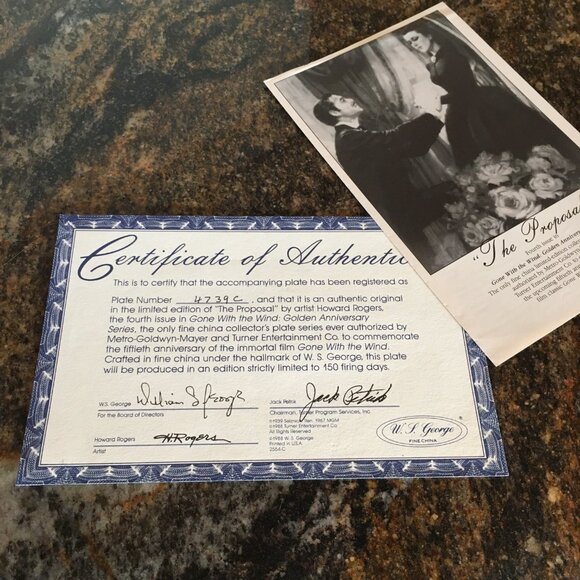 Certificate of Authentic
This is to certify that the accompanying plate has been registered as
Plate Number 4739C, and that it is an authentic original
in the limited edition of "The Proposal" by artist Howard Rogers,
the fourth issue in Gone With the Wind: Golden Anniversary
Series, the only fine china collector's plate series ever authorized by
Metro-Goldwyn-Mayer and Turner Entertainment Co. to commemorate
the fiftieth anniversary of the immortal film Gone With the Wind.
Crafted in fine china under the hallmark of W. S. George, this plate
will be produced in an edition strictly limited to 150 firing days.
W.S. George
For the Board of Directors
Jack Petrik
Jack Petrik
Chairman, Turner Program Services, Inc.
Howard Rogers
H. Rogers
Artist
©1939 Selznick Ren. 1967 MGM
©1988 Turner Entertainment Co.
All Rights Reserved
©1988 W. S. George
Printed in U.S.A.
W. S. George
FINE CHINA
"The Proposa
Fourth issue
Gone With the Wind: Golden Annivers
The only fine china limited-edition
authorized by Metro-Goldwyn
Turner Entertainment Co.
the upcoming fiftieth
film classic Gone